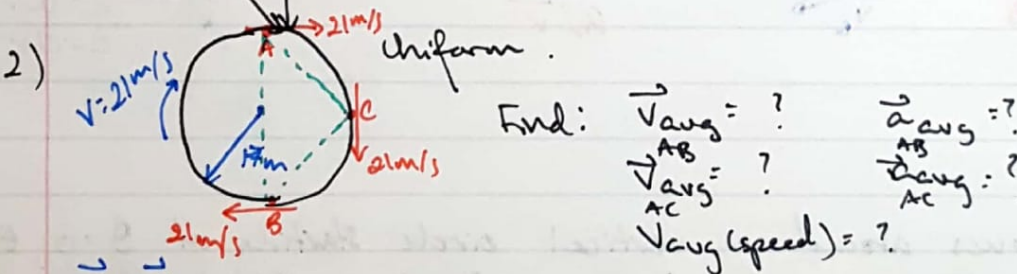 2)
A
21m/s
Uniform.
V=21m/s
C
21m/s
B
21m/s
Find: V⃗avg AB = ? a⃗avg AB = ?
V⃗avg AC = ? a⃗avg AC = ?
Vavg (speed) = ?